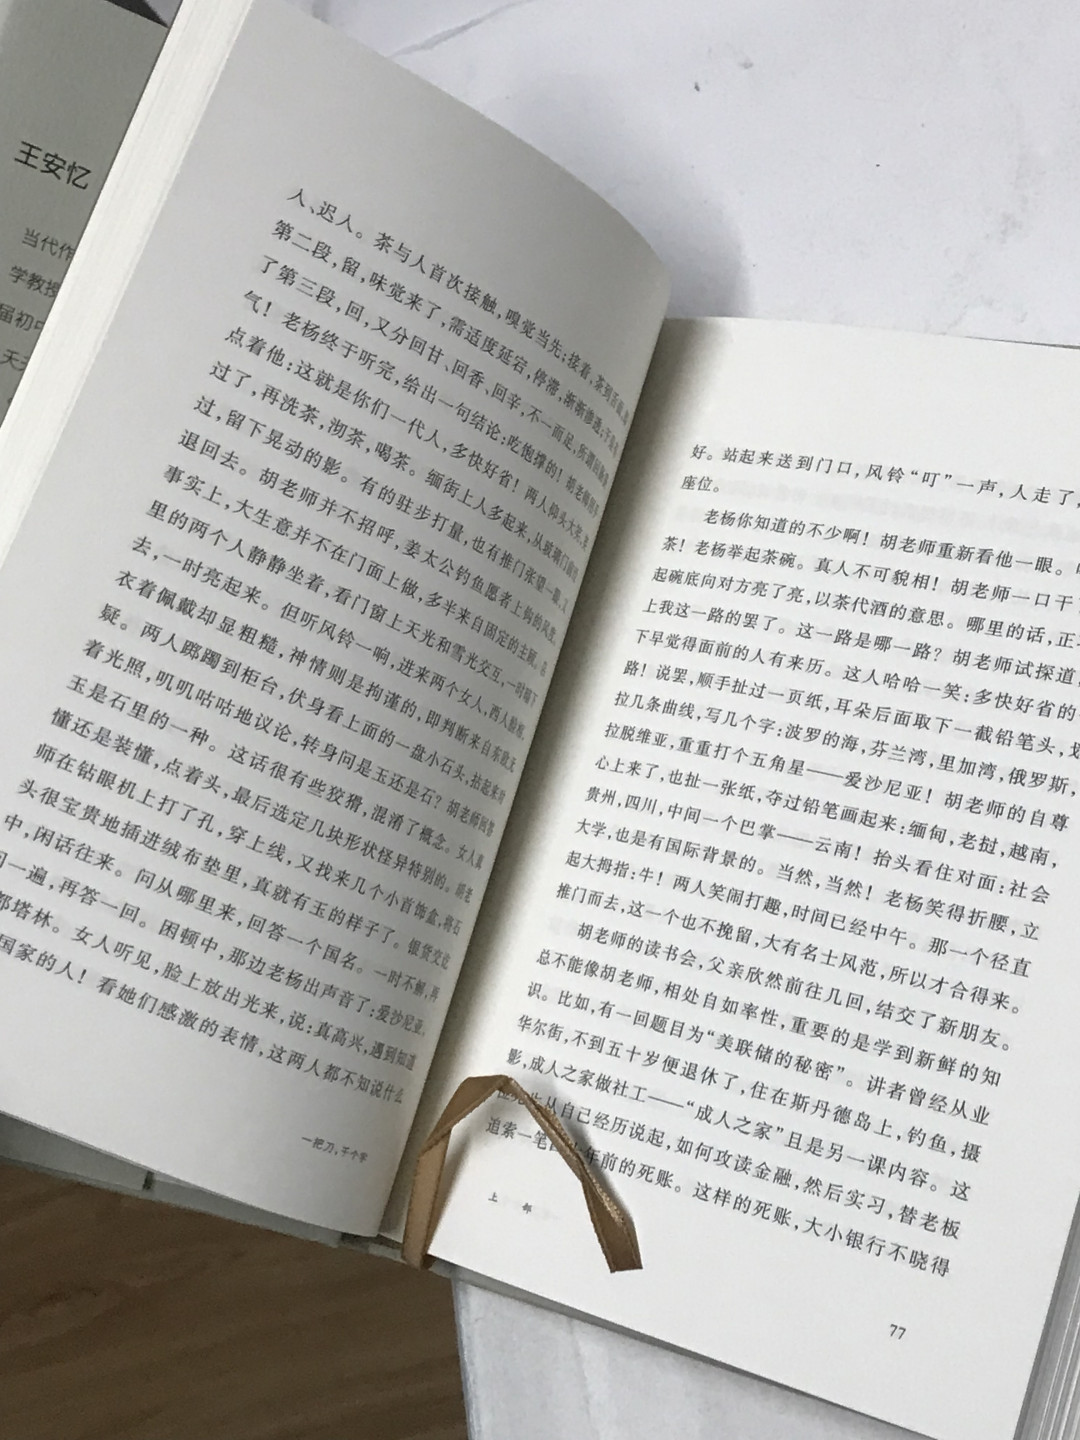 王安忆
当代作
学教授
届初中
人、迟人。茶与人首次接触，嗅觉当先；接着，茶到舌面，
第二段，留，味觉来了，需适度延宕，停滞，渐渐渗透；于是
了第三段，回，又分回甘、回香、回辛，不一而足，所谓回
气！老杨终于听完，给出一句结论：吃饱撑的！胡老师
点着他：这就是你们一代人，多快好省！两人仰头大笑，
过了，再洗茶，沏茶，喝茶。缅街上人多起来，从玻璃门前
过，留下晃动的影。有的驻步打量，也有推门张望一眼，又
退回去。胡老师并不招呼，姜太公钓鱼愿者上钩的风度。
事实上，大生意并不在门面上做，多半来自固定的主顾。
里的两个人静静坐着，看门窗上天光和雪光交互，一时暗下
去，一时亮起来。但听风铃一响，进来两个女人，西人脸相，
衣着佩戴却显粗糙，神情则是拘谨的，即判断来自东欧无
疑。两人踯躅到柜台，伏身看上面的一盘小石头，拈起来对
着光照，叽叽咕咕地议论，转身问是玉还是石？胡老师回答
玉是石里的一种。这话很有些狡猾，混淆了概念。女人真
懂还是装懂，点着头，最后选定几块形状怪异特别的。胡老
师在钻眼机上打了孔，穿上线，又找来几个小首饰盒，将石
头很宝贵地插进绒布垫里，真就有玉的样子了。银货交讫
中，闲话往来。问从哪里来，回答一个国名。一时不解，再
问一遍，再答一回。困顿中，那边老杨出声音了：爱沙尼亚，
都塔林。女人听见，脸上放出光来，说：真高兴，遇到知道
国家的人！看她们感激的表情，这两人都不知说什么
一把刀，千个字
好。站起来送到门口，风铃“叮”一声，人走了，
座位。
老杨你知道的不少啊！胡老师重新看他一眼。
茶！老杨举起茶碗。真人不可貌相！胡老师一口干了
起碗底向对方亮了亮，以茶代酒的意思。哪里的话，正
上我这一路的罢了。这一路是哪一路？胡老师试探道，
下早觉得面前的人有来历。这人哈哈一笑：多快好省的
路！说罢，顺手扯过一页纸，耳朵后面取下一截铅笔头，划
拉几条曲线，写几个字：波罗的海，芬兰湾，里加湾，俄罗斯，
拉脱维亚，重重打个五角星——爱沙尼亚！胡老师的自尊
心上来了，也扯一张纸，夺过铅笔画起来：缅甸，老挝，越南，
贵州，四川，中间一个巴掌——云南！抬头看住对面：社会
大学，也是有国际背景的。当然，当然！老杨笑得折腰，立
起大拇指：牛！两人笑闹打趣，时间已经中午。那一个径直
推门而去，这一个也不挽留，大有名士风范，所以才合得来。
胡老师的读书会，父亲欣然前往几回，结交了新朋友。
总不能像胡老师，相处自如率性，重要的是学到新鲜的知
识。比如，有一回题目为“美联储的秘密”。讲者曾经从业
华尔街，不到五十岁便退休了，住在斯丹德岛上，钓鱼，摄
影，成人之家做社工——“成人之家”且是另一课内容。这
从自己经历说起，如何攻读金融，然后实习，替老板
追索一笔年前的死账。这样的死账，大小银行不晓得
上 部
77